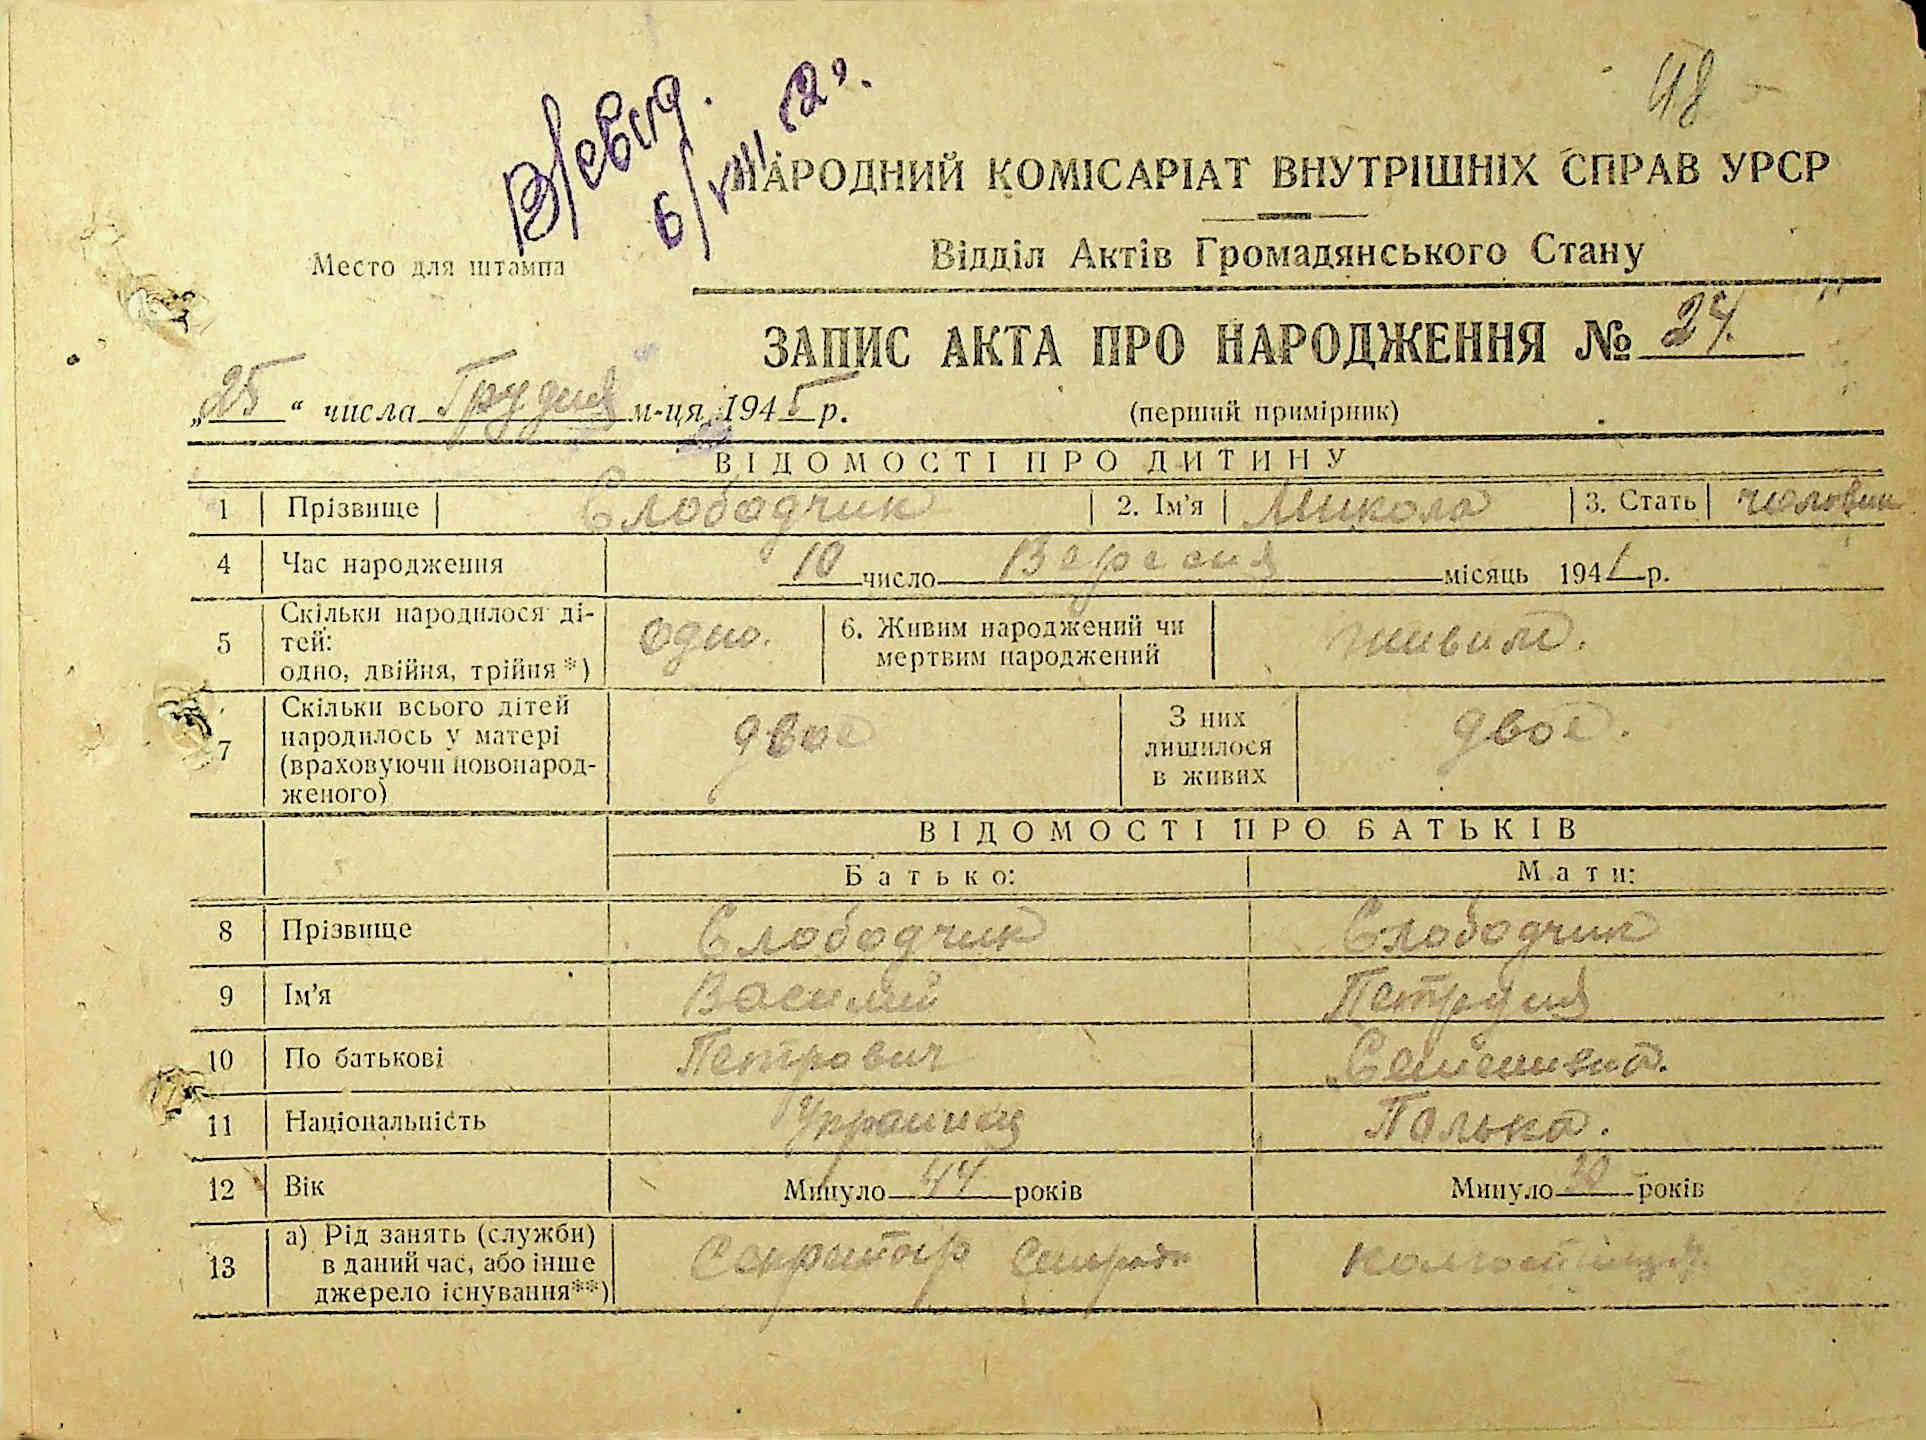 48
В/евид.
6/VIII 12г.
НАРОДНИЙ КОМІСАРІАТ ВНУТРІШНІХ СПРАВ УРСР
Место для штампа
Відділ Актів Громадянського Стану
ЗАПИС АКТА ПРО НАРОДЖЕННЯ № 24.
„25“ числа Грудня м-ця 1945 р.
(перший примірник)
ВІДОМОСТІ ПРО ДИТИНУ
1 Прізвище Слободчик 2. Ім'я Микола 3. Стать чоловік
4 Час народження 10 число Вересня місяць 1941 р.
5 Скільки народилося ді-
тей:
одно, двійня, трійня *) одно. 6. Живим народжений чи
мертвим народжений живим.
7 Скільки всього дітей
народилось у матері
(враховуючи новонарод-
женого) двоє З них
лишилося
в живих двоє.
ВІДОМОСТІ ПРО БАТЬКІВ
Батько: Мати:
8 Прізвище Слободчик Слободчик
9 Ім'я Василий Петрудия
10 По батькові Петрович
11 Національність Украинец Полька.
12 Вік Минуло 44 років Минуло 30 років
13 а) Рід занять (служби)
в даний час, або інше
джерело існування**) Секретар Сельради